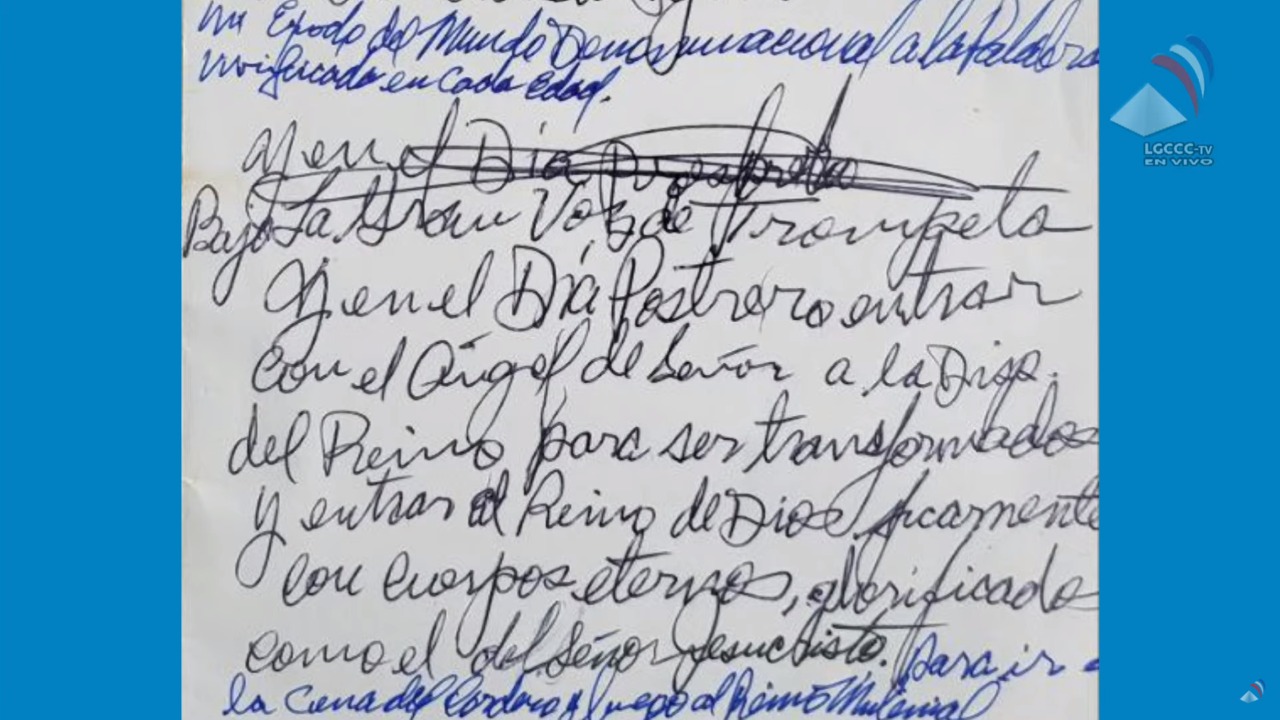 un Éxodo del Mundo Denominacional a la Palabra
vivificada en cada Edad.
y en el Día
Bajo La Gran Voz de Trompeta
y en el Día Postrero entrar
con el Ángel de Señor a la Disp.
del Reino para ser transformados
y entrar al Reino de Dios físicamente
con cuerpos eternos, glorificados
como el del Señor Jesucristo. para ir a
la Cena del Cordero y luego al Reino Milenial
LGCCC-TV
EN VIVO